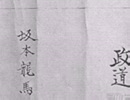 政道
坂本龍馬